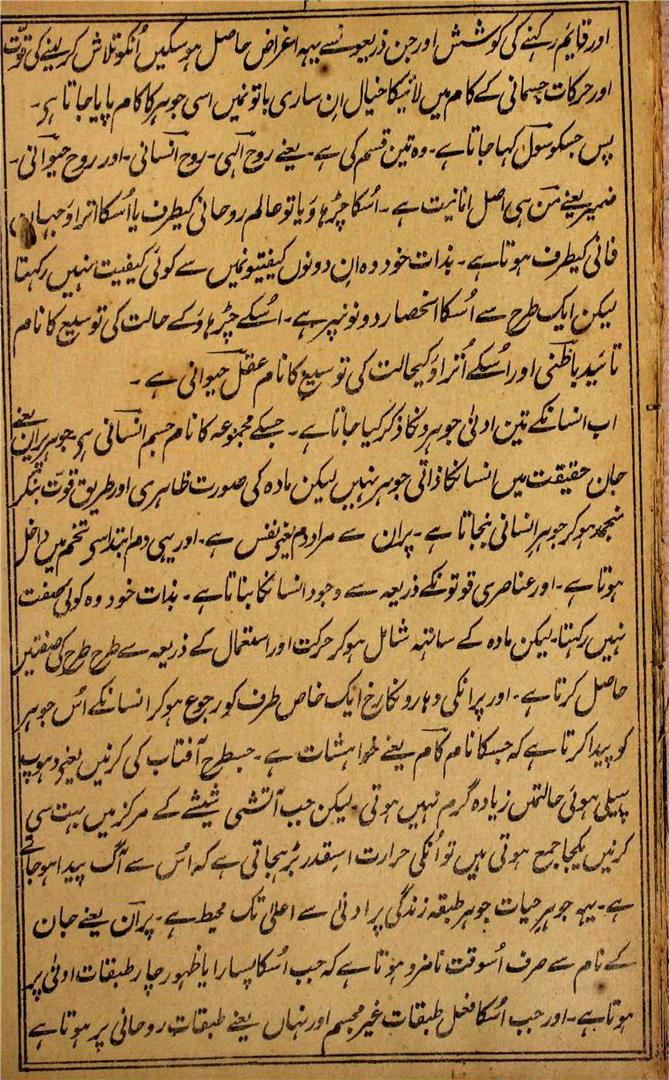 اور قایم رکہنے کی کوشش اور جن ذریعونسے یہہ اغراض حاصل ہوسکیں اُنکو تلاش کر لینے کی قوّت
اور حرکات جسمانی کے کام میں لانیکا خیال اِن ساری باتونمیں اسی جوہر کا کام پایا جاتا ہی۔
پس جسکو سول کہا جاتا ہے۔ وہ تین قسم کی ہے۔ یعنے روح الٰہی۔ روح انسانی۔ اور روح حیوانی۔
ضمیر یعنے من ہی اصل انانیت ہے۔ اسکا چڑہاؤ یا تو عالم روحانی کیطرف یا اُسکا اتراؤ جہان
فانی کیطرف ہوتا ہے۔ بذات خود وہ اِن دونوں کیفیتونمیں سے کوئی کیفیت نہیں رکہتا
لیکن ایک طرح سے اُسکا انحصار دونونپر ہے۔ اُسکے چڑہاؤ کے حالت کی توسیع کا نام
تائید باطنی اور اُسکے اُتراؤ کیحالت کی توسیع کا نام عقل حیوانی ہے۔
اب انسانکے تین ادنیٰ جوہرونکا ذکر کیا جاتا ہے۔ جسکے مجموعہ کا نام جسم انسانی ہی جوہر پران یعنے
جان حقیقت میں انسانکا ذاتی جوہر نہیں لیکن مادہ کی صورت ظاہری اور طریق قوّت بنکر
منجمد ہو کر جوہر انسانی بنجاتا ہے۔ پران سے مراد دم یعنے نفس ہے۔ اور یہی دم ابتدا سے تخم میں داخل
ہوتا ہے۔ اور عناصری قوتونکے ذریعہ سے وجود انسانکا بناتا ہے۔ بذات خود وہ کوئی صفت
نہیں رکہتا۔ لیکن مادہ کے ساتہہ شامل ہو کر حرکت اور استعمال کے ذریعہ سے طرح طرح کی صفتیں
حاصل کرتا ہے۔ اور پرانکی دہارونکا رخ ایک خاص طرف کو رجوع ہو کر انسانکے اُس جوہر
کو پیدا کرتا ہے کہ جسکا نام کام یعنے خواہشات ہے۔ جسطرح آفتاب کی کرنیں یعنے دہوپ
پہیلی ہوئی حالتمیں زیادہ گرم نہیں ہوتی۔ لیکن جب آتشی شیشے کے مرکز میں بہت سی
کرنیں یکجا جمع ہوتی ہیں تو اُنکی حرارت اسقدر بڑہجاتی ہے کہ اُس سے آگ پیدا ہو جاتی
ہے۔ یہہ جوہر حیات جوہر طبقہ زندگی پر ادنیٰ سے اعلیٰ تک محیط ہے۔ پران یعنے جان
کے نام سے صرف اُسوقت نامزد ہوتا ہے کہ جب اُسکا پسارا یا ظہور چار طبقات ادنیٰ پر
ہوتا ہے۔ اور جب اُسکا فعل طبقات غیر مجسم اور نہاں یعنے طبقات روحانی پر ہوتا ہے